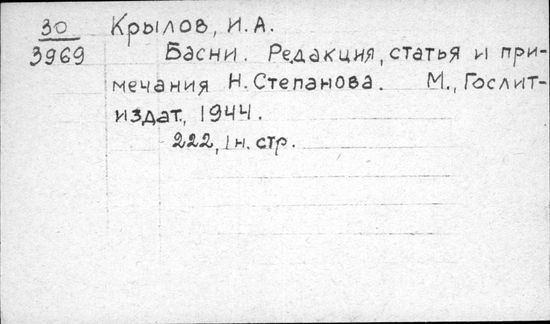 30 Крылов, И.А.
3969 Басни. Редакция, статья и при-
мечания Н.Степанова. М., Гослит-
издат., 1944.
222, 1 н. стр.